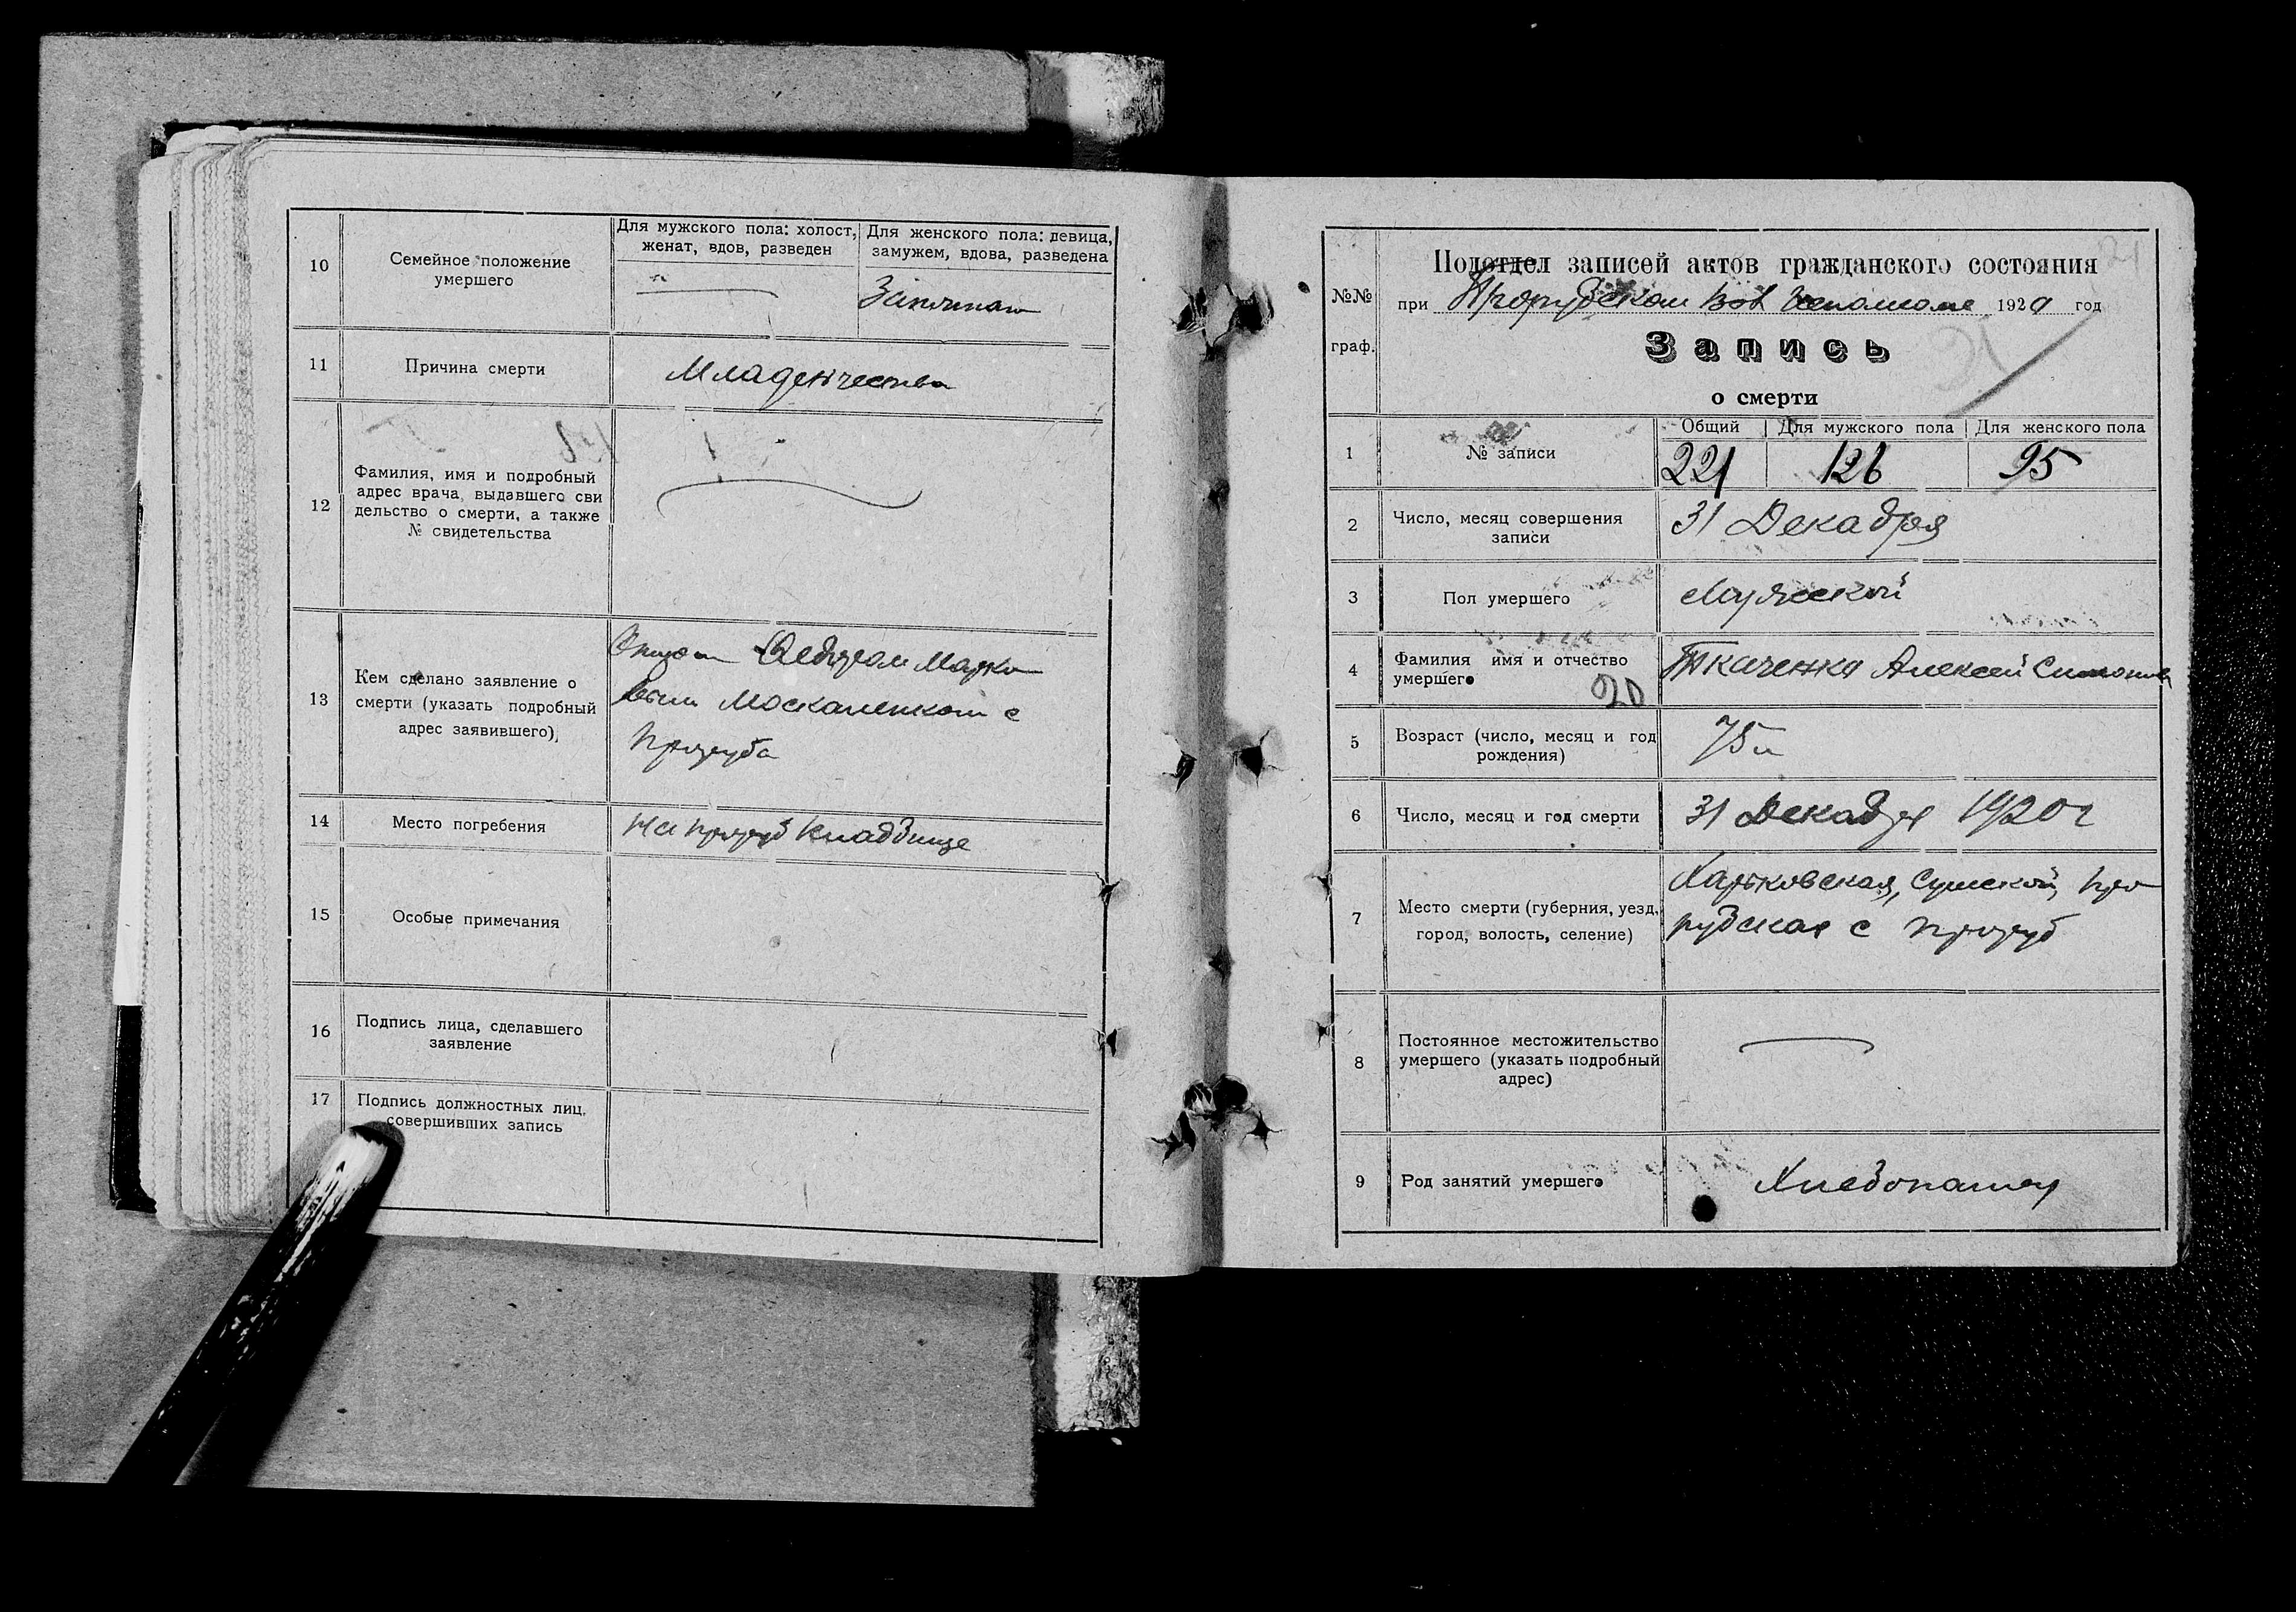 10
Семейное положение
умершего
Для мужского пола: холост,
женат, вдов, разведен
Для женского пола: девица,
замужем, вдова, разведена
11
Причина смерти
Младенчества
12
Фамилия, имя и подробный
адрес врача, выдавшего сви
дельство о смерти, а также
№ свидетельства
13
Кем сделано заявление о
смерти (указать подробный
адрес заявившего)
Марко
вым Москаленком с
Проруба
14
Место погребения
На проруб кладбище
15
Особые примечания
16
Подпись лица, сделавшего
заявление
17
Подпись должностных лиц,
совершивших запись
Подотдел записей актов гражданского состояния
№№
граф.
при Прорубском Вол Исполкоме 1920 год
Запись
о смерти
1
№ записи
Общий
Для мужского пола
Для женского пола
221
126
95
2
Число, месяц совершения
записи
31 Декабря
3
Пол умершего
Мужской
4
Фамилия имя и отчество
умершего
20
Ткаченко Алексей Симонов
5
Возраст (число, месяц и год
рождения)
75 л
6
Число, месяц и год смерти
31 Декабря 1920 г
7
Место смерти (губерния, уезд,
город, волость, селение)
Харьковская, Сумской, Про
рубская с Проруб
8
Постоянное местожительство
умершего (указать подробный
адрес)
9
Род занятий умершего
Хлебопашец